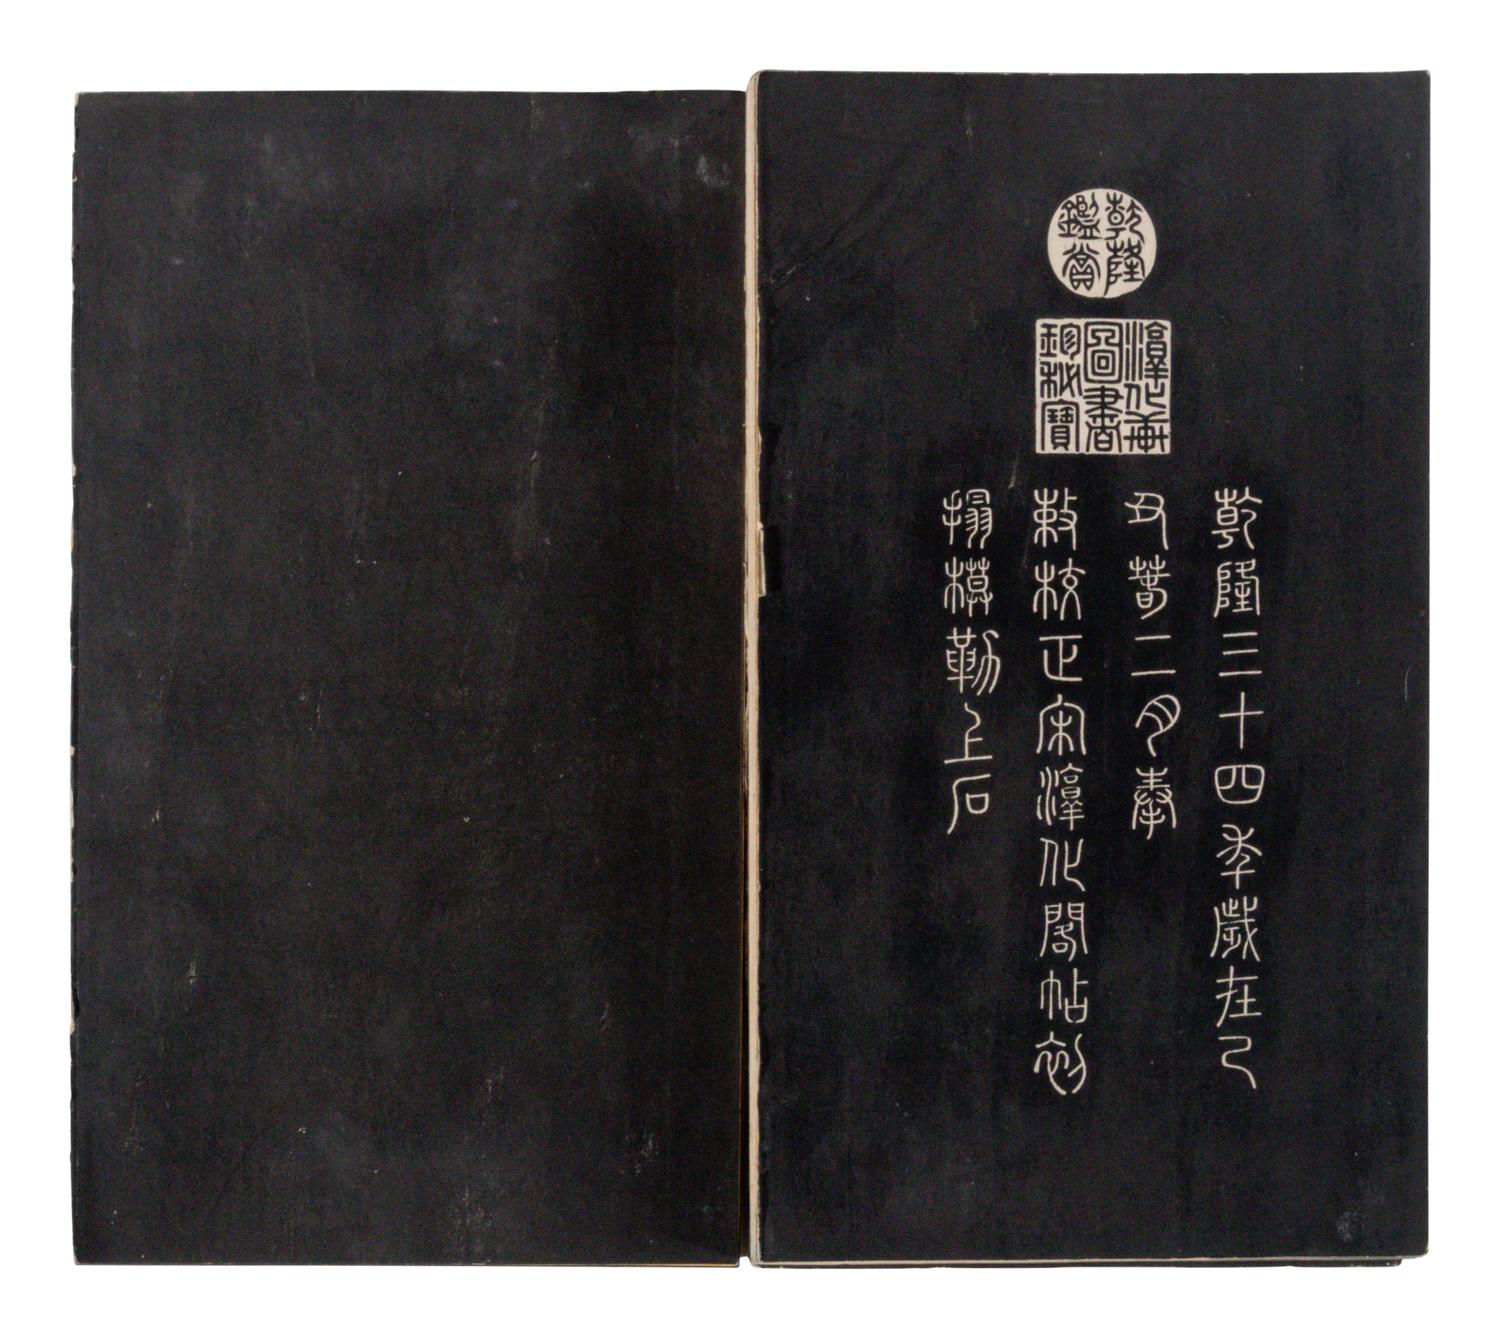 乾隆鑑賞
淳化軒
圖書
珍秘寶
乾隆三十四年歲在己
丑春二月奉
敕校正宋淳化閣帖初
搨模勒上石